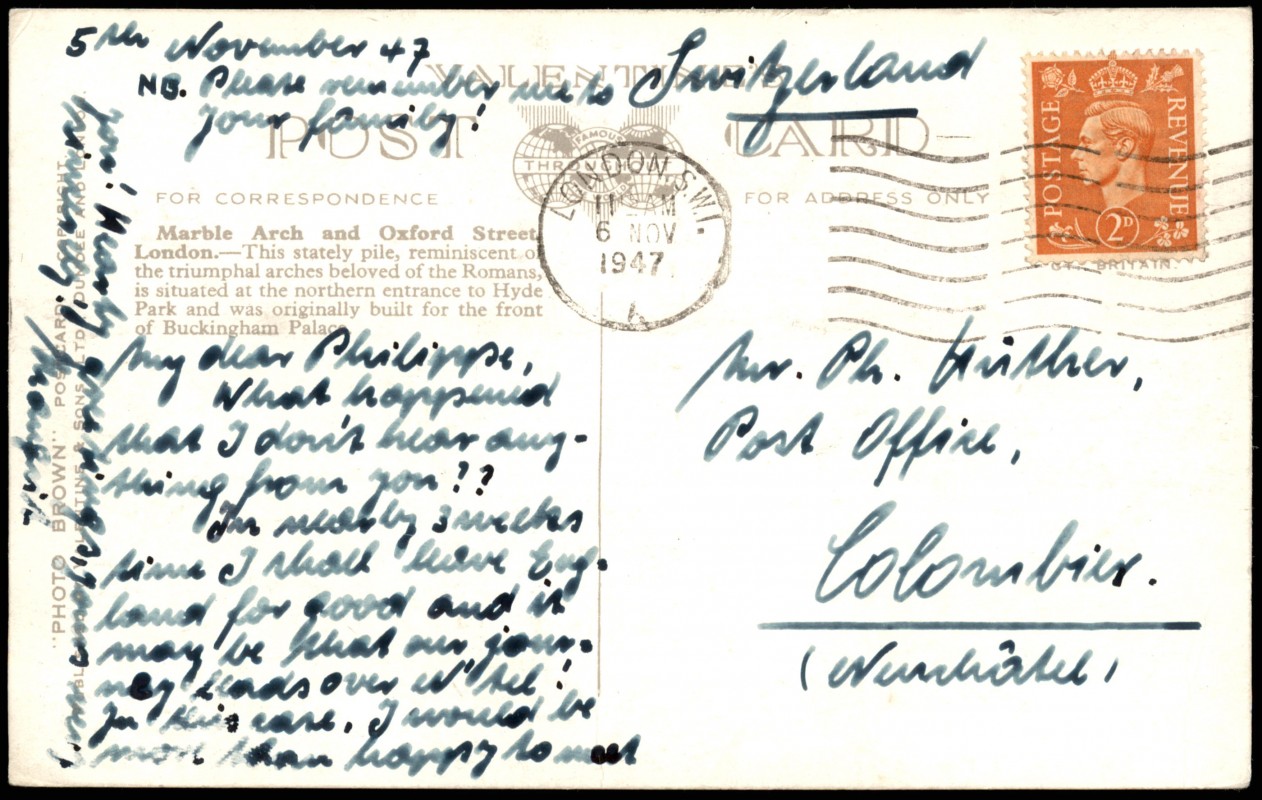 5th November 47
NB. Please remember me to
your family!
Switzerland
VALENTINE'S
POST CARD
FAMOUS
THROUGHOUT
FOR CORRESPONDENCE
FOR ADDRESS ONLY
LONDON. S.W.1.
11 AM
6 NOV
1947
A
POSTAGE REVENUE
2D
GT. BRITAIN.
Marble Arch and Oxford Street,
London.—This stately pile, reminiscent of
the triumphal arches beloved of the Romans,
is situated at the northern entrance to Hyde
Park and was originally built for the front
of Buckingham Palace.
My dear Philippe,
What happened
that I don't hear any-
thing from you??
In nearly 3 weeks
time I shall leave Eng-
land for good and it
may be that our jour-
ney leads over N'tel!
In this case, I would be
more than happy to meet
you! Hearty greetings
"PHOTO BROWN" POSTCARD. COPYRIGHT
VALENTINE & SONS, LTD. DUNDEE AND
Mr. Ph. Hüther,
Post Office,
Colombier.
(Neuchâtel)